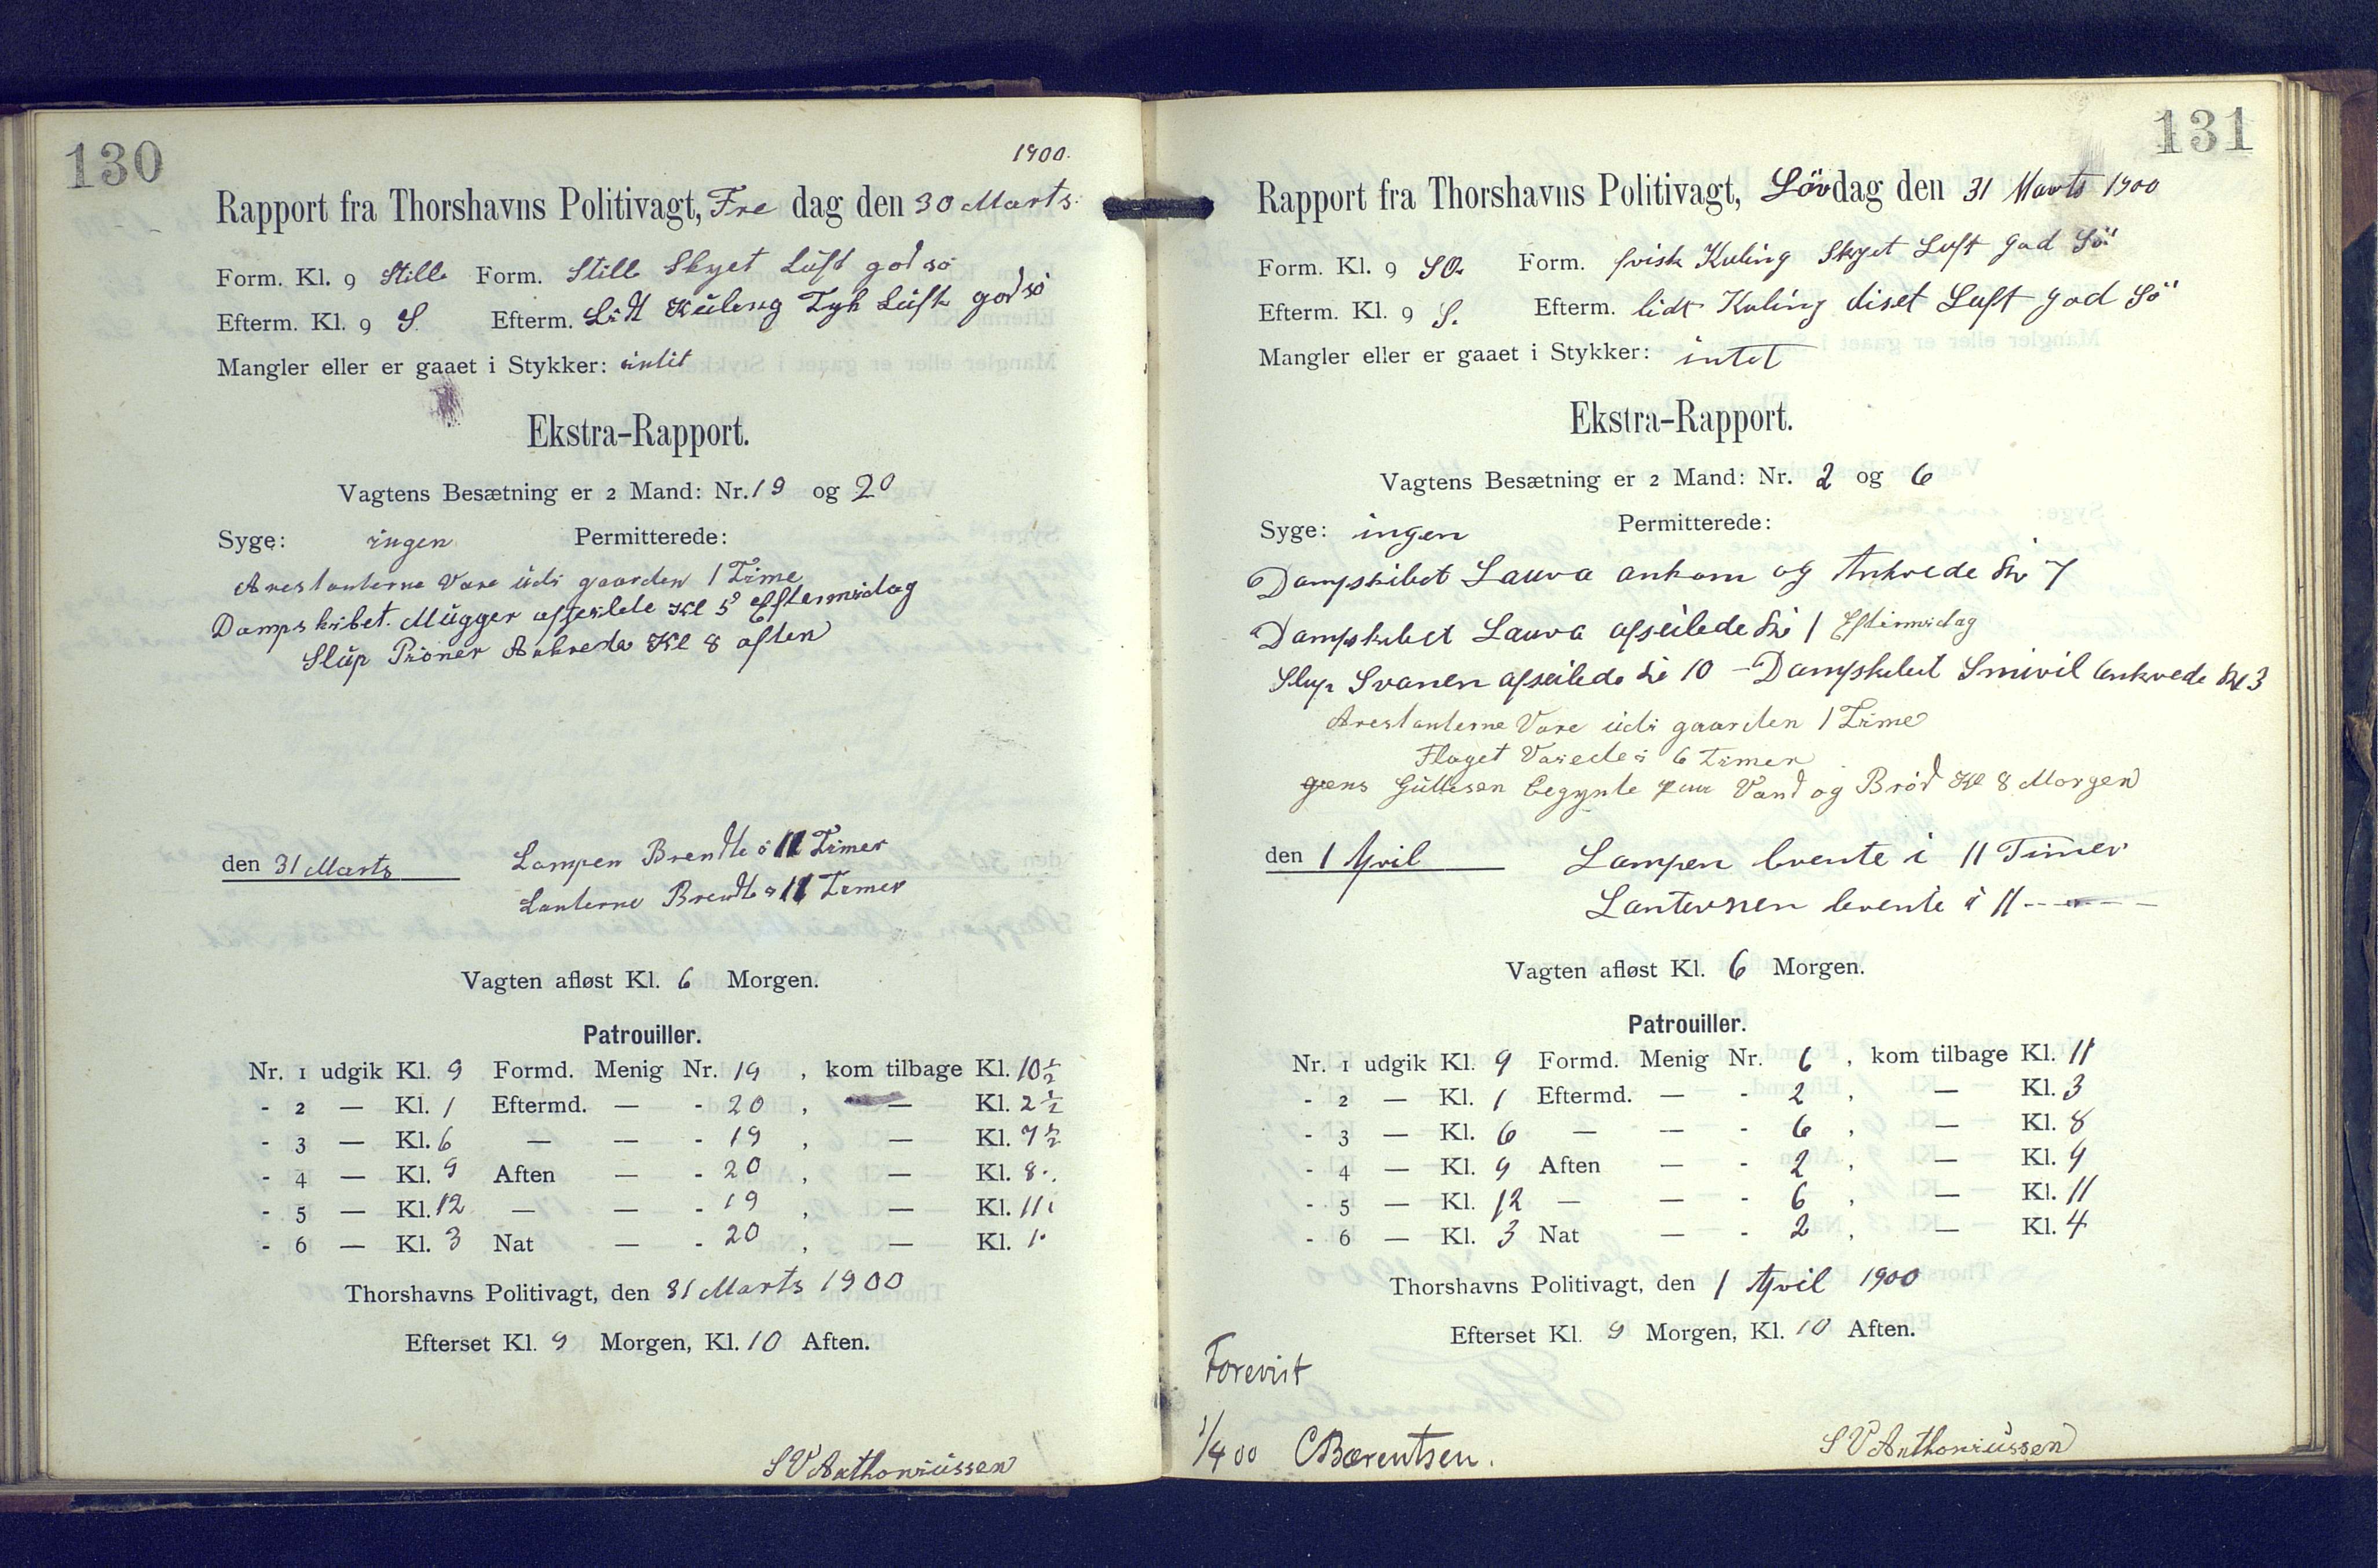 130
1900.
Rapport fra Thorshavns Politivagt, Fre dag den 30 Marts.
Form. Kl. 9 Stille Form. Still Skyet Lüft god sö
Efterm. Kl. 9 S. Efterm. Lidt Küleng Tyk Lüft god sö
Mangler eller er gaaet i Stykker: intit
Ekstra-Rapport.
Vagtens Besætning er 2 Mand: Nr. 19 og 20
Syge: ingen Permitterede:
Arestanterne Vare üdi gaarden 1 Time
Dampskibet. Mügger afseilede Kl 5 Eftermidag
Slüp Pioner Ankrede Kl 8 aften
den 31 Marts Lampen Brendte i 11 Timer
Lanterne Brendte i 11 Timer
Vagten afløst Kl. 6 Morgen.
Patrouiller.
Nr. 1 udgik Kl. 9 Formd. Menig Nr. 19 , kom tilbage Kl. 10½
- 2 — Kl. 1 Eftermd. — - 20 , — Kl. 2½
- 3 — Kl. 6 — — - 19 , — Kl. 7½
- 4 — Kl. 9 Aften — - 20 , — Kl. 8.
- 5 — Kl. 12 — — - 19 , — Kl. 11
- 6 — Kl. 3 Nat — - 20 , — Kl. 1.
Thorshavns Politivagt, den 31 Marts 1900
Efterset Kl. 9 Morgen, Kl. 10 Aften.
S V Anthoniüssen
131
Rapport fra Thorshavns Politivagt, Löv dag den 31 Marts 1900
Form. Kl. 9 SO. Form. frisk Kuling Skyet Luft God Sö
Efterm. Kl. 9 S. Efterm. lidt Kuling diset Luft God Sö
Mangler eller er gaaet i Stykker: intet
Ekstra-Rapport.
Vagtens Besætning er 2 Mand: Nr. 2 og 6
Syge: ingen Permitterede:
Dampskibet Laura ankom og Ankrede Kl 7
Dampskibet Laura afseilede Kl 1 Eftermidag
Slup Svanen afseilede Kl 10 - Dampskibet Smiril Ankrede Kl 3
Arestanterne Vare üdi gaarden 1 Time
Flaget Vaiede i 6 Timer
Güllesen Begynte paa Vand og Bröd Kl 8 Morgen
den 1 April Lampen brente i 11 Timer
Lanternen brente i 11 - - - -
Vagten afløst Kl. 6 Morgen.
Patrouiller.
Nr. 1 udgik Kl. 9 Formd. Menig Nr. 6 , kom tilbage Kl. 11
- 2 — Kl. 1 Eftermd. — - 2 , — Kl. 3
- 3 — Kl. 6 — — - 6 , — Kl. 8
- 4 — Kl. 9 Aften — - 2 , — Kl. 9
- 5 — Kl. 12 — — - 6 , — Kl. 11
- 6 — Kl. 3 Nat — - 2 , — Kl. 4
Thorshavns Politivagt, den 1 April 1900
Efterset Kl. 9 Morgen, Kl. 10 Aften.
Forevist
1/4 00 CBærentsen.
S V Anthoniüssen